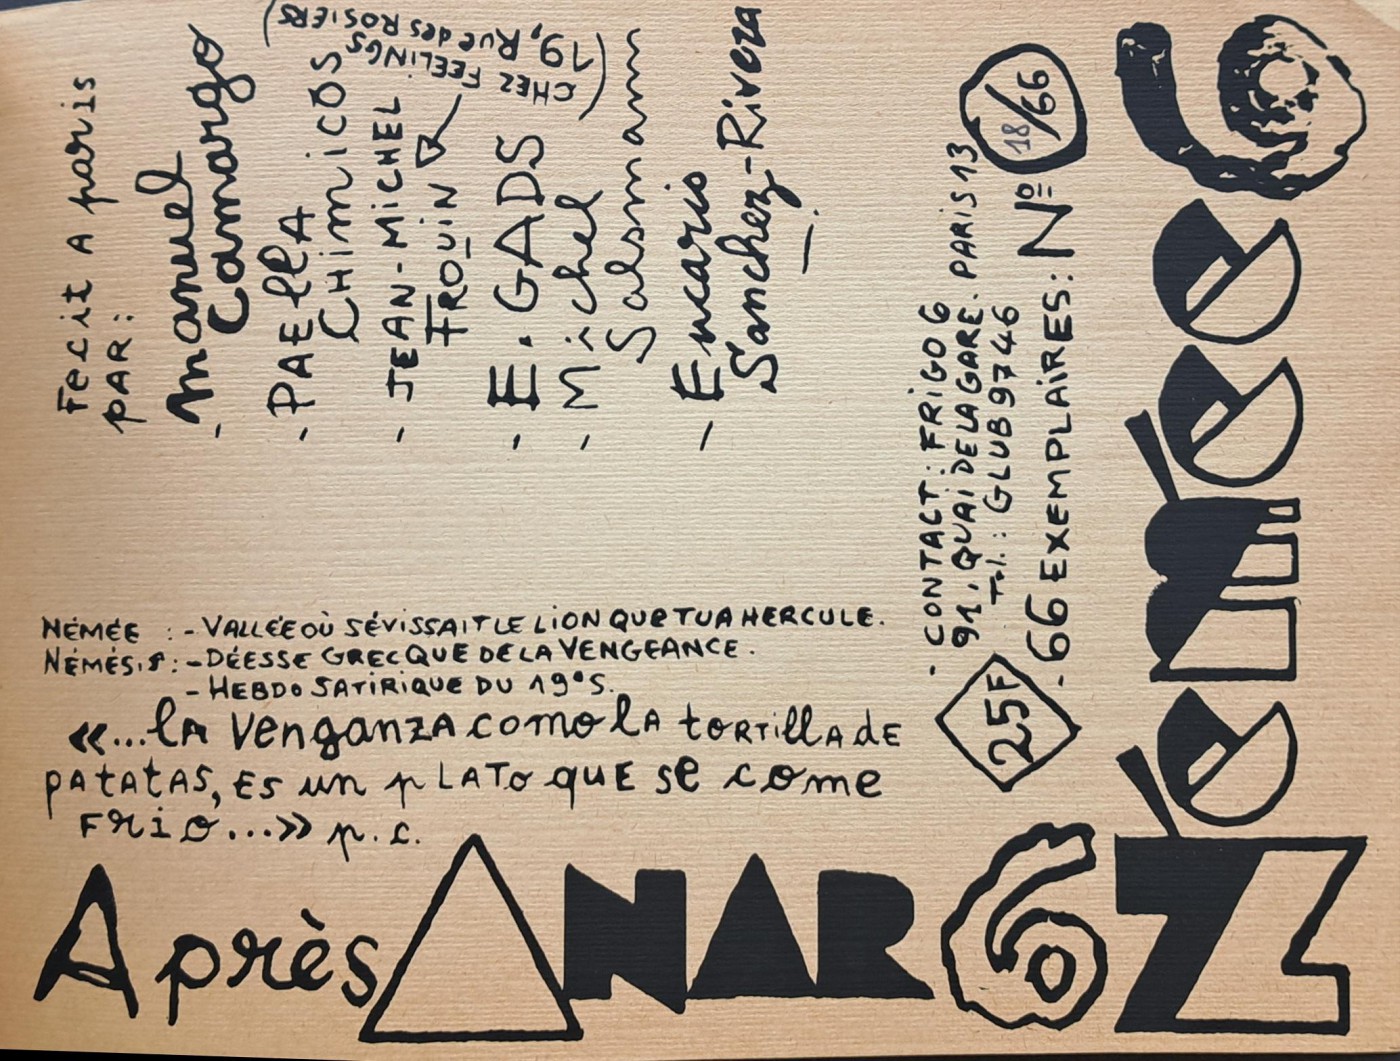 Fecit A paris
PAR:
- Manuel
Camargo
- PAEllA
CHimiCOS
- JEAN-MiCHEL
FROUiN
(CHEZ FEELINGS
19, Rue des ROSIERS)
- E. GADS
- Michel
Salsmann
- Encaris
Sanchez-Rivera
NÉMÉE : - VALLÉE OÙ SÉVISSAIT LE LION QUE TUA HERCULE.
NÉMÉSIS : - DÉESSE GRECQUE DE LA VENGEANCE.
- HEBDO SATIRIQUE DU 19°S.
«...lA VenganzA como lA toRTillA dE
pAtAtAS, Es un pLATo quE se come
FRiO...» p.c.
- CONTACT: FRIGO 6
91, QUAI DE LA GARE. PARIS 13
Tel.: GLUB 9746
- 66 EXEMPLAiRES: Nº 18/66
25F
Après ANAR6
Némée6